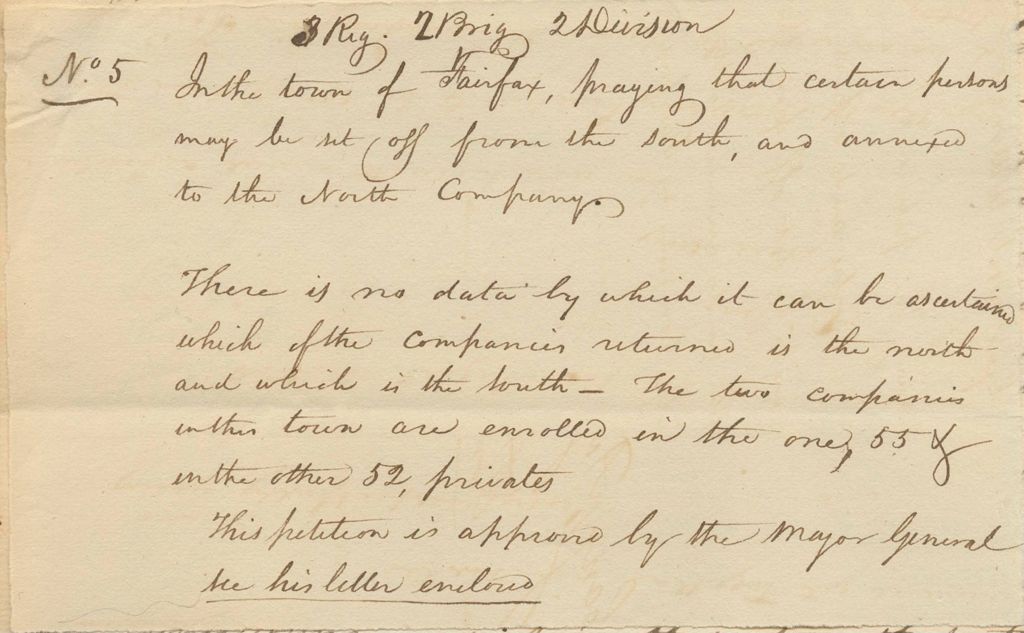 3 Reg. 2 Brig 2 Division
No 5
In the town of Fairfax, praying that certain persons
may be set off from the south, and annexed
to the North Company.
There is no data by which it can be ascertained
which of the Companies returned is the north
and which is the south – The two companies
in this town are enrolled in the one, 55 &
in the other 52, privates
This petition is approved by the Major General
see his letter enclosed